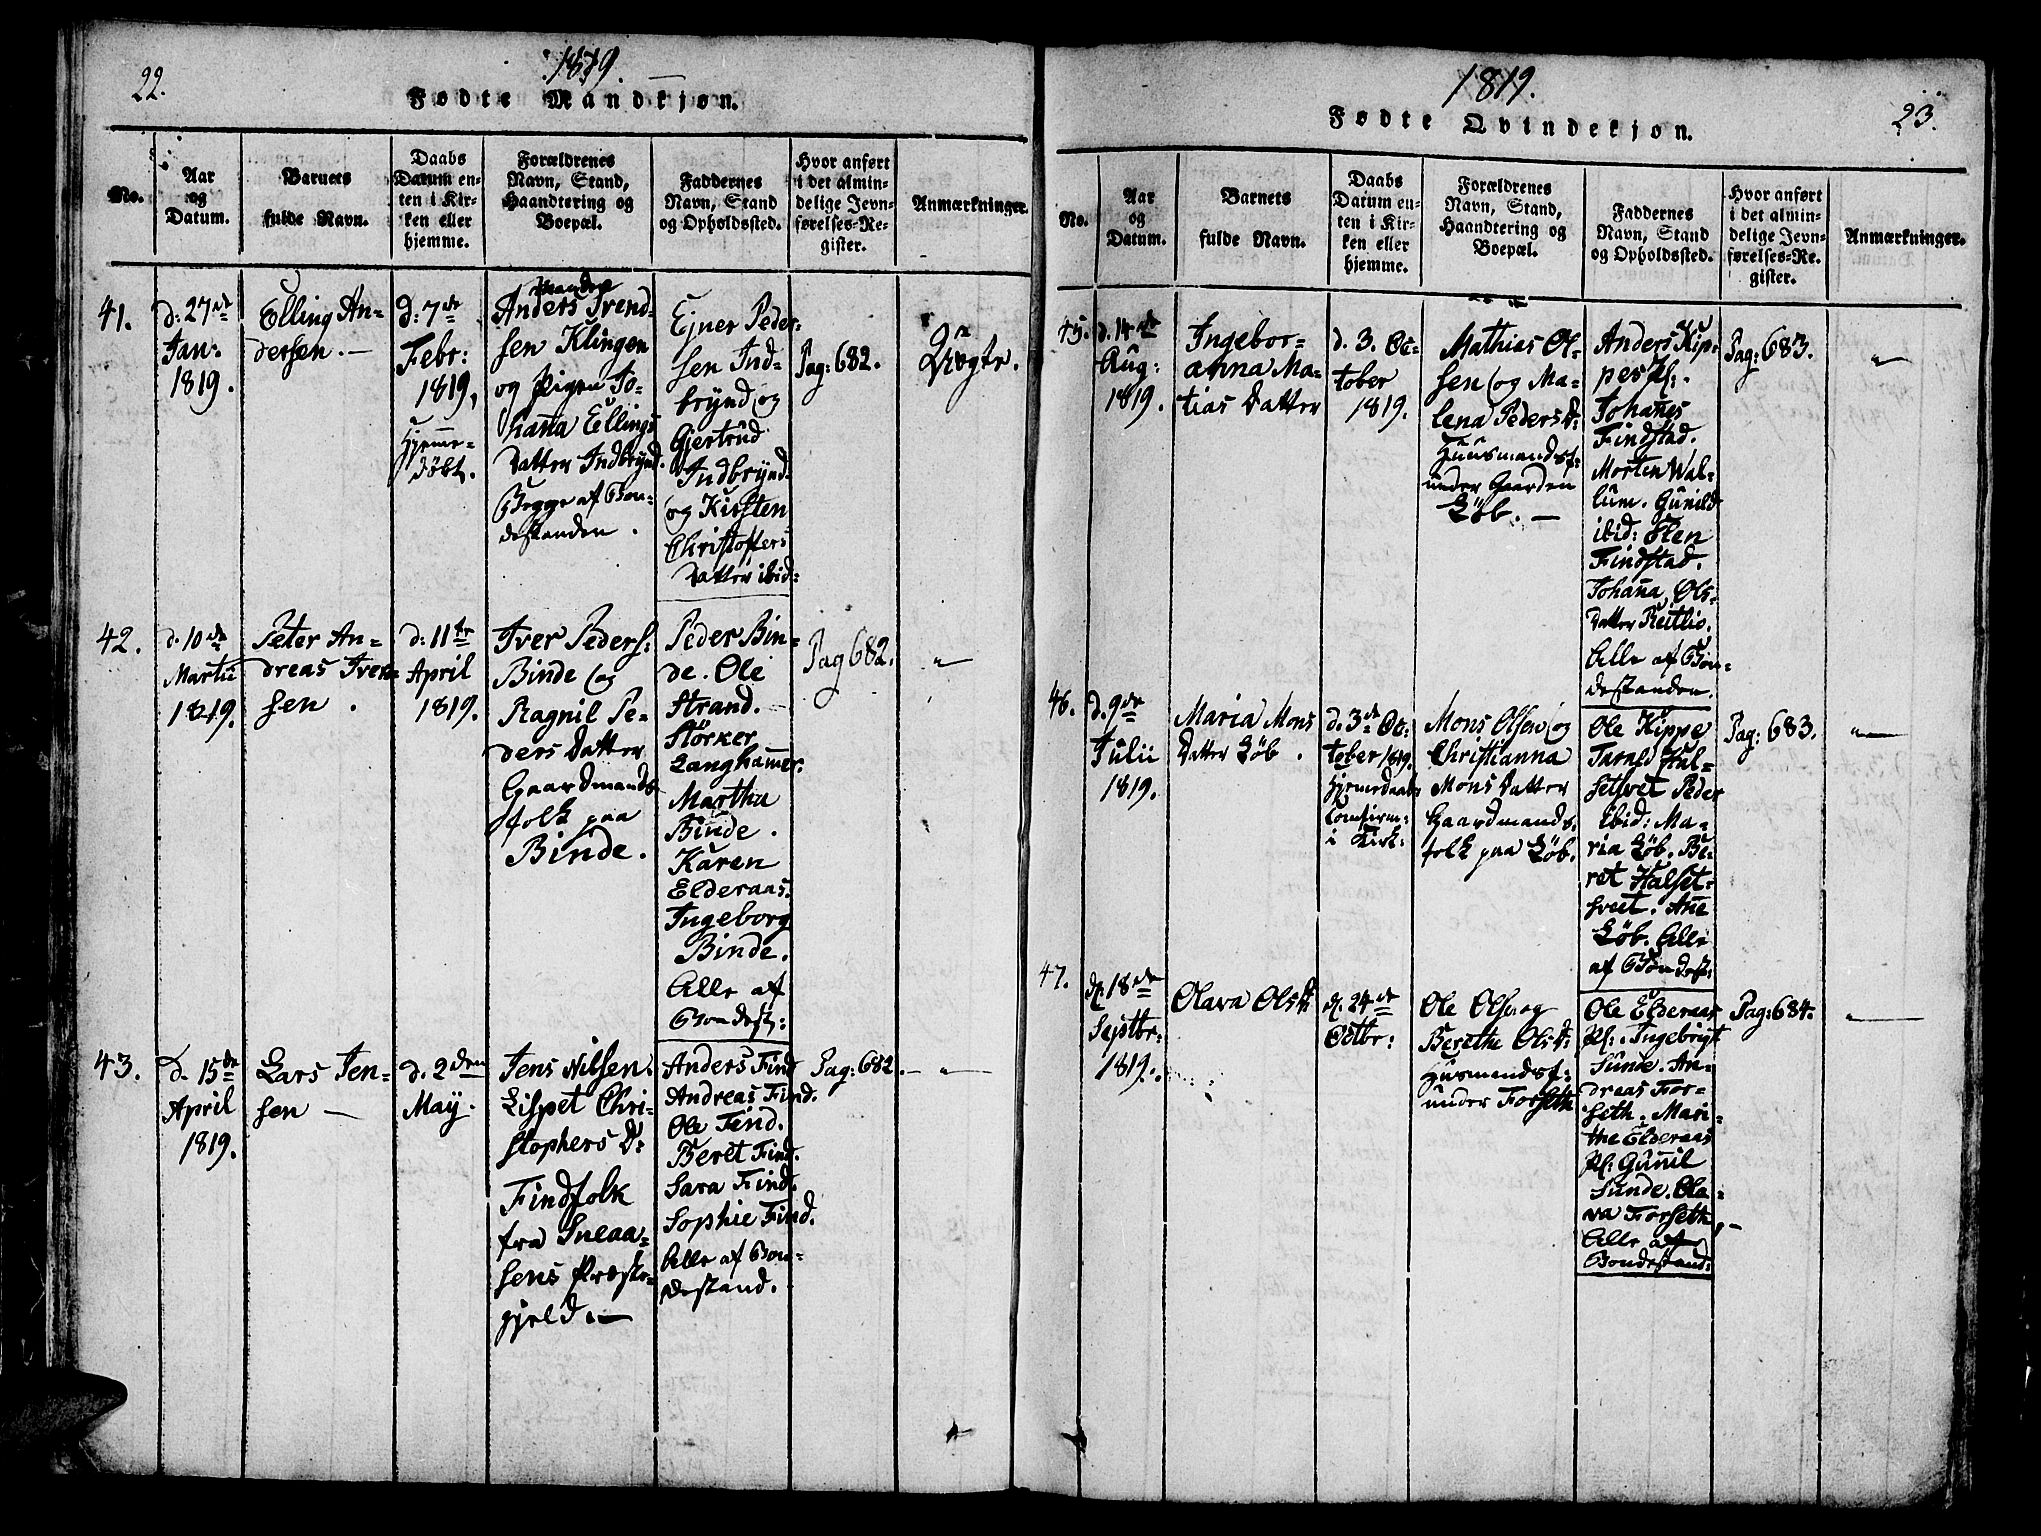 22.
1819.
Fødte Mandkjøn.
No.
Aar
og
Datum.
Barnets
fulde Navn.
Daabs
Datum en-
ten i Kir-
ken eller
hjemme.
Forældrenes
Navn, Stand,
Haandtering og
Boepæl.
Faddernes
Navn, Stand
og Opholdssted.
Hvor anført
i det almin-
delige Jevn-
førelses-Re-
gister.
Anmærkninger.
41.
d: 27de
Jan:
1819.
Elling An-
dersen. —
d: 7de
Febr:
1819,
Hjeme-
døbt.
Anders Ivend-
sen Klingen
og Pigen Jo-
hana Ellings
Datter Indbrynd.
Begge af Bon-
destanden.
Ejner Peder-
sen Ind-
brynd og
Gjertrud
Indbrynd
og Kirsten
Christofers
Datter ibid:
Pag: 682.
Uægte.
42.
d. 10de
Martii
1819.
Peter An-
dreas Iver-
sen.
d: 11te
April
1819.
Iver Peders:
Binde og
Ragnil Pe-
ders Datter
Gaardmands
folk paa
Binde.
Peder Bin-
de. Ole
Strand.
Størker
Langhamer.
Martha
Binde.
Karen
Elderaas.
Ingeborg
Binde.
Alle af
Bondest:
Pag 682.
"
43.
d. 15de
April
1819.
Lars Jen-
sen —
d. 2den
May.
Jens Nilsen.
Lispet Chri-
stophers D:
Findfolk
fra Sneaa-
sens Præste-
gjeld. —
Anders Find
Andreas Find.
Ole Find.
Beret Find.
Sara Find.
Sophie Find.
Alle af Bon-
destand.
Pag: 682.
"
1819.
Fødte Qvindekjøn.
23.
No.
Aar
og
Datum.
Barnets
fulde Navn.
Daabs
Datum en-
ten i Kir-
ken eller
hjemme.
Forældrenes
Navn, Stand,
Haandtering og
Boepæl.
Faddernes
Navn, Stand
og Opholdssted.
Hvor anført
i det almin-
delige Jevn-
førelses-Re-
gister.
Anmærkninger.
45.
d. 14de
Aug:
1819.
Ingebor-
anna Ma-
tias Datter
d. 3. Oc-
tober
1819.
Mathias Ol-
sen og Ma-
lena Peders D:
Huusmandsf:
under Gaarden
Løb. —
Anders Kip-
pes Pl:.
Johanes
Findstad.
Morten Wal-
lum. Gunild
ibid: Sten
Findstad.
Johana Ols-
datter Reitlio.
Alle af Bon-
destanden.
Pag: 683.
"
46.
d. 9de
Julii
1819.
Maria Mons
Datter Løb.
d. 3de Oc-
tober 1819.
Hjemedaabs
Confirm:
i Kirk:
Mons Olsen og
Christianna
Mons Datter
Gaardmands
folk paa Løb.
Ole Kippe
Tarald Hal-
setsvet Peder
ibid: Ma-
ria Løb. Be-
ret Halset-
sveet. Ane
Løb. Alle
af Bondest:
Pag: 683.
"
47.
d. 18de
Septbr:
1819.
Olava Ols D:
d. 24de
Octbr:
Ole Ols: og
Berethe Ols D:
Husmandsf:
under Forseth
Ole Elderaas
Pl:. Ingebrigt
Sunde. An-
dreas For-
seth. Mari-
the Elderaas
Pl: Gunil
Sunde. Ola-
va Forseth,
Alle af
Bondestand:
Pag: 684.